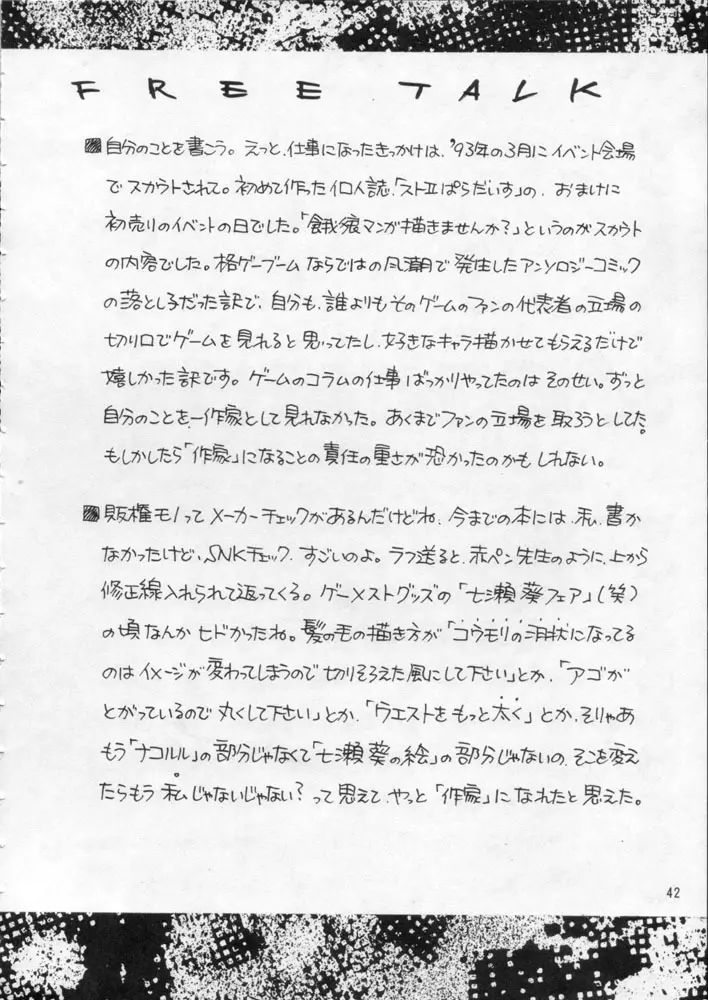 FREE TALK
自分のことを書こう。えっと、仕事になったきっかけは、'93年の3月にイベント会場
でスカウトされて。初めて作った個人誌、「ストⅡぱらだいす」の、おまけに
初売りのイベントの日でした。「餓狼マンガ描きませんか?」というのがスカウト
の内容でした。格ゲーブームならではの風潮で発生したアンソロジーコミック
の落とし子だった訳で、自分も、誰よりもそのゲームのファンの代表者の立場の
切り口でゲームを見れると思ってたし、好きなキャラ描かせてもらえるだけで
嬉しかった訳です。ゲームのコラムの仕事ばっかりやってたのはそのせい。ずっと
自分のことを、一作家として見れなかった。あくまでファンの立場を取ろうとしてた。
もしかしたら「作家」になることの責任の重さが恐かったのかもしれない。
版権モノってメーカーチェックがあるんだけどね、今までの本には、私、書か
なかったけど、SNKチェック、すごいのよ。ラフ送ると、赤ペン先生のように、上から
修正線入れられて返ってくる。ゲーメストグッズの「七瀬葵フェア」(笑)
の頃なんかヒドかったね。髪の毛の描き方が「コウモリの羽状になってる
のはイメージが変わってしまうので切りそろえた風にして下さい」とか、「アゴが
とがっているので丸くして下さい」とか、「ウエストをもっと太く」とか、そりゃあ
もう「ナコルル」の部分じゃなくて「七瀬葵の絵」の部分じゃないの、そこを変え
たらもう私じゃないじゃない?って思えて、やっと「作家」になれたと思えた。
42